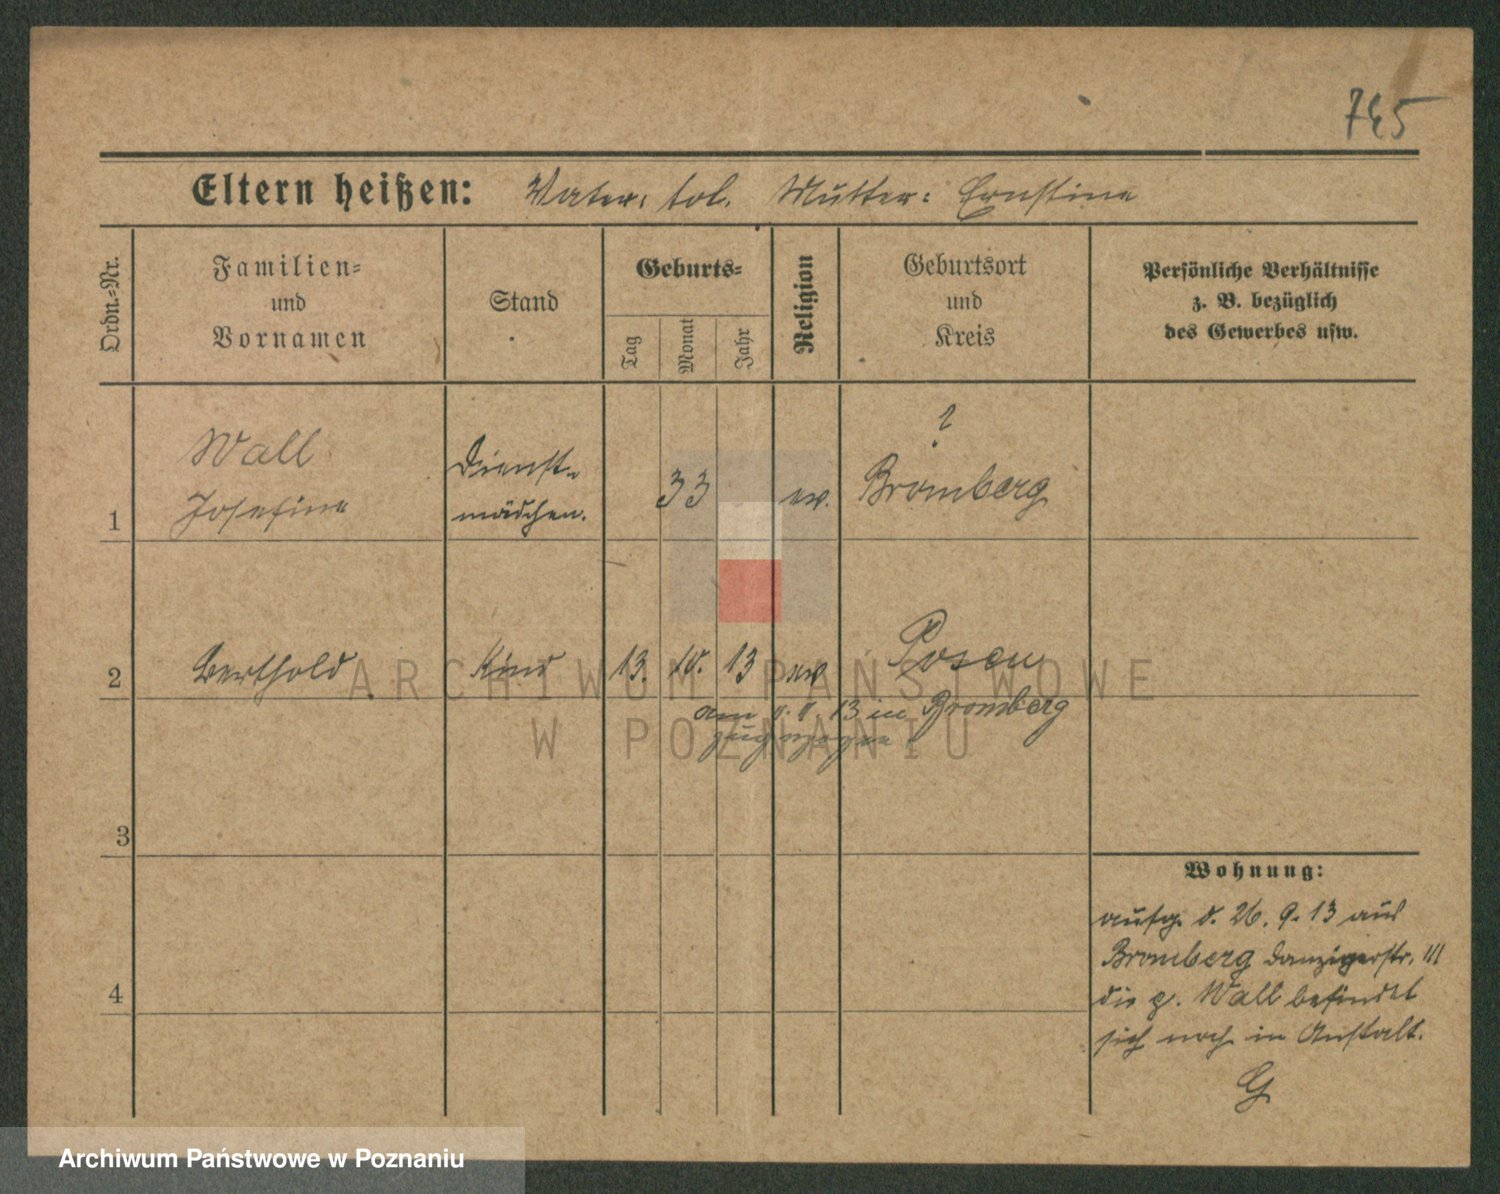 745
Eltern heißen: Vater: tot. Mutter: Ernstine
Ordn.-Nr.
Familien-
und
Vornamen
Stand
Geburts-
Tag
Monat
Jahr
Religion
Geburtsort
und
Kreis
Persönliche Verhältnisse
z. B. bezüglich
des Gewerbes usw.
1
Wall
Josefine
Dienst-
mädchen.
33
ev.
?
Bromberg
2
Berthold
Kind
13. 10. 13
ev
Posen
am 13 in Bromberg
zugezogen
3
4
Wohnung:
aufg. d. 26. 9. 13 aus
Bromberg Danzigerstr. 111
die p. Wall befindet
sich noch in Anstalt.
G
ARCHIWUM PAŃSTWOWE
W POZNANIU
Archiwum Państwowe w Poznaniu